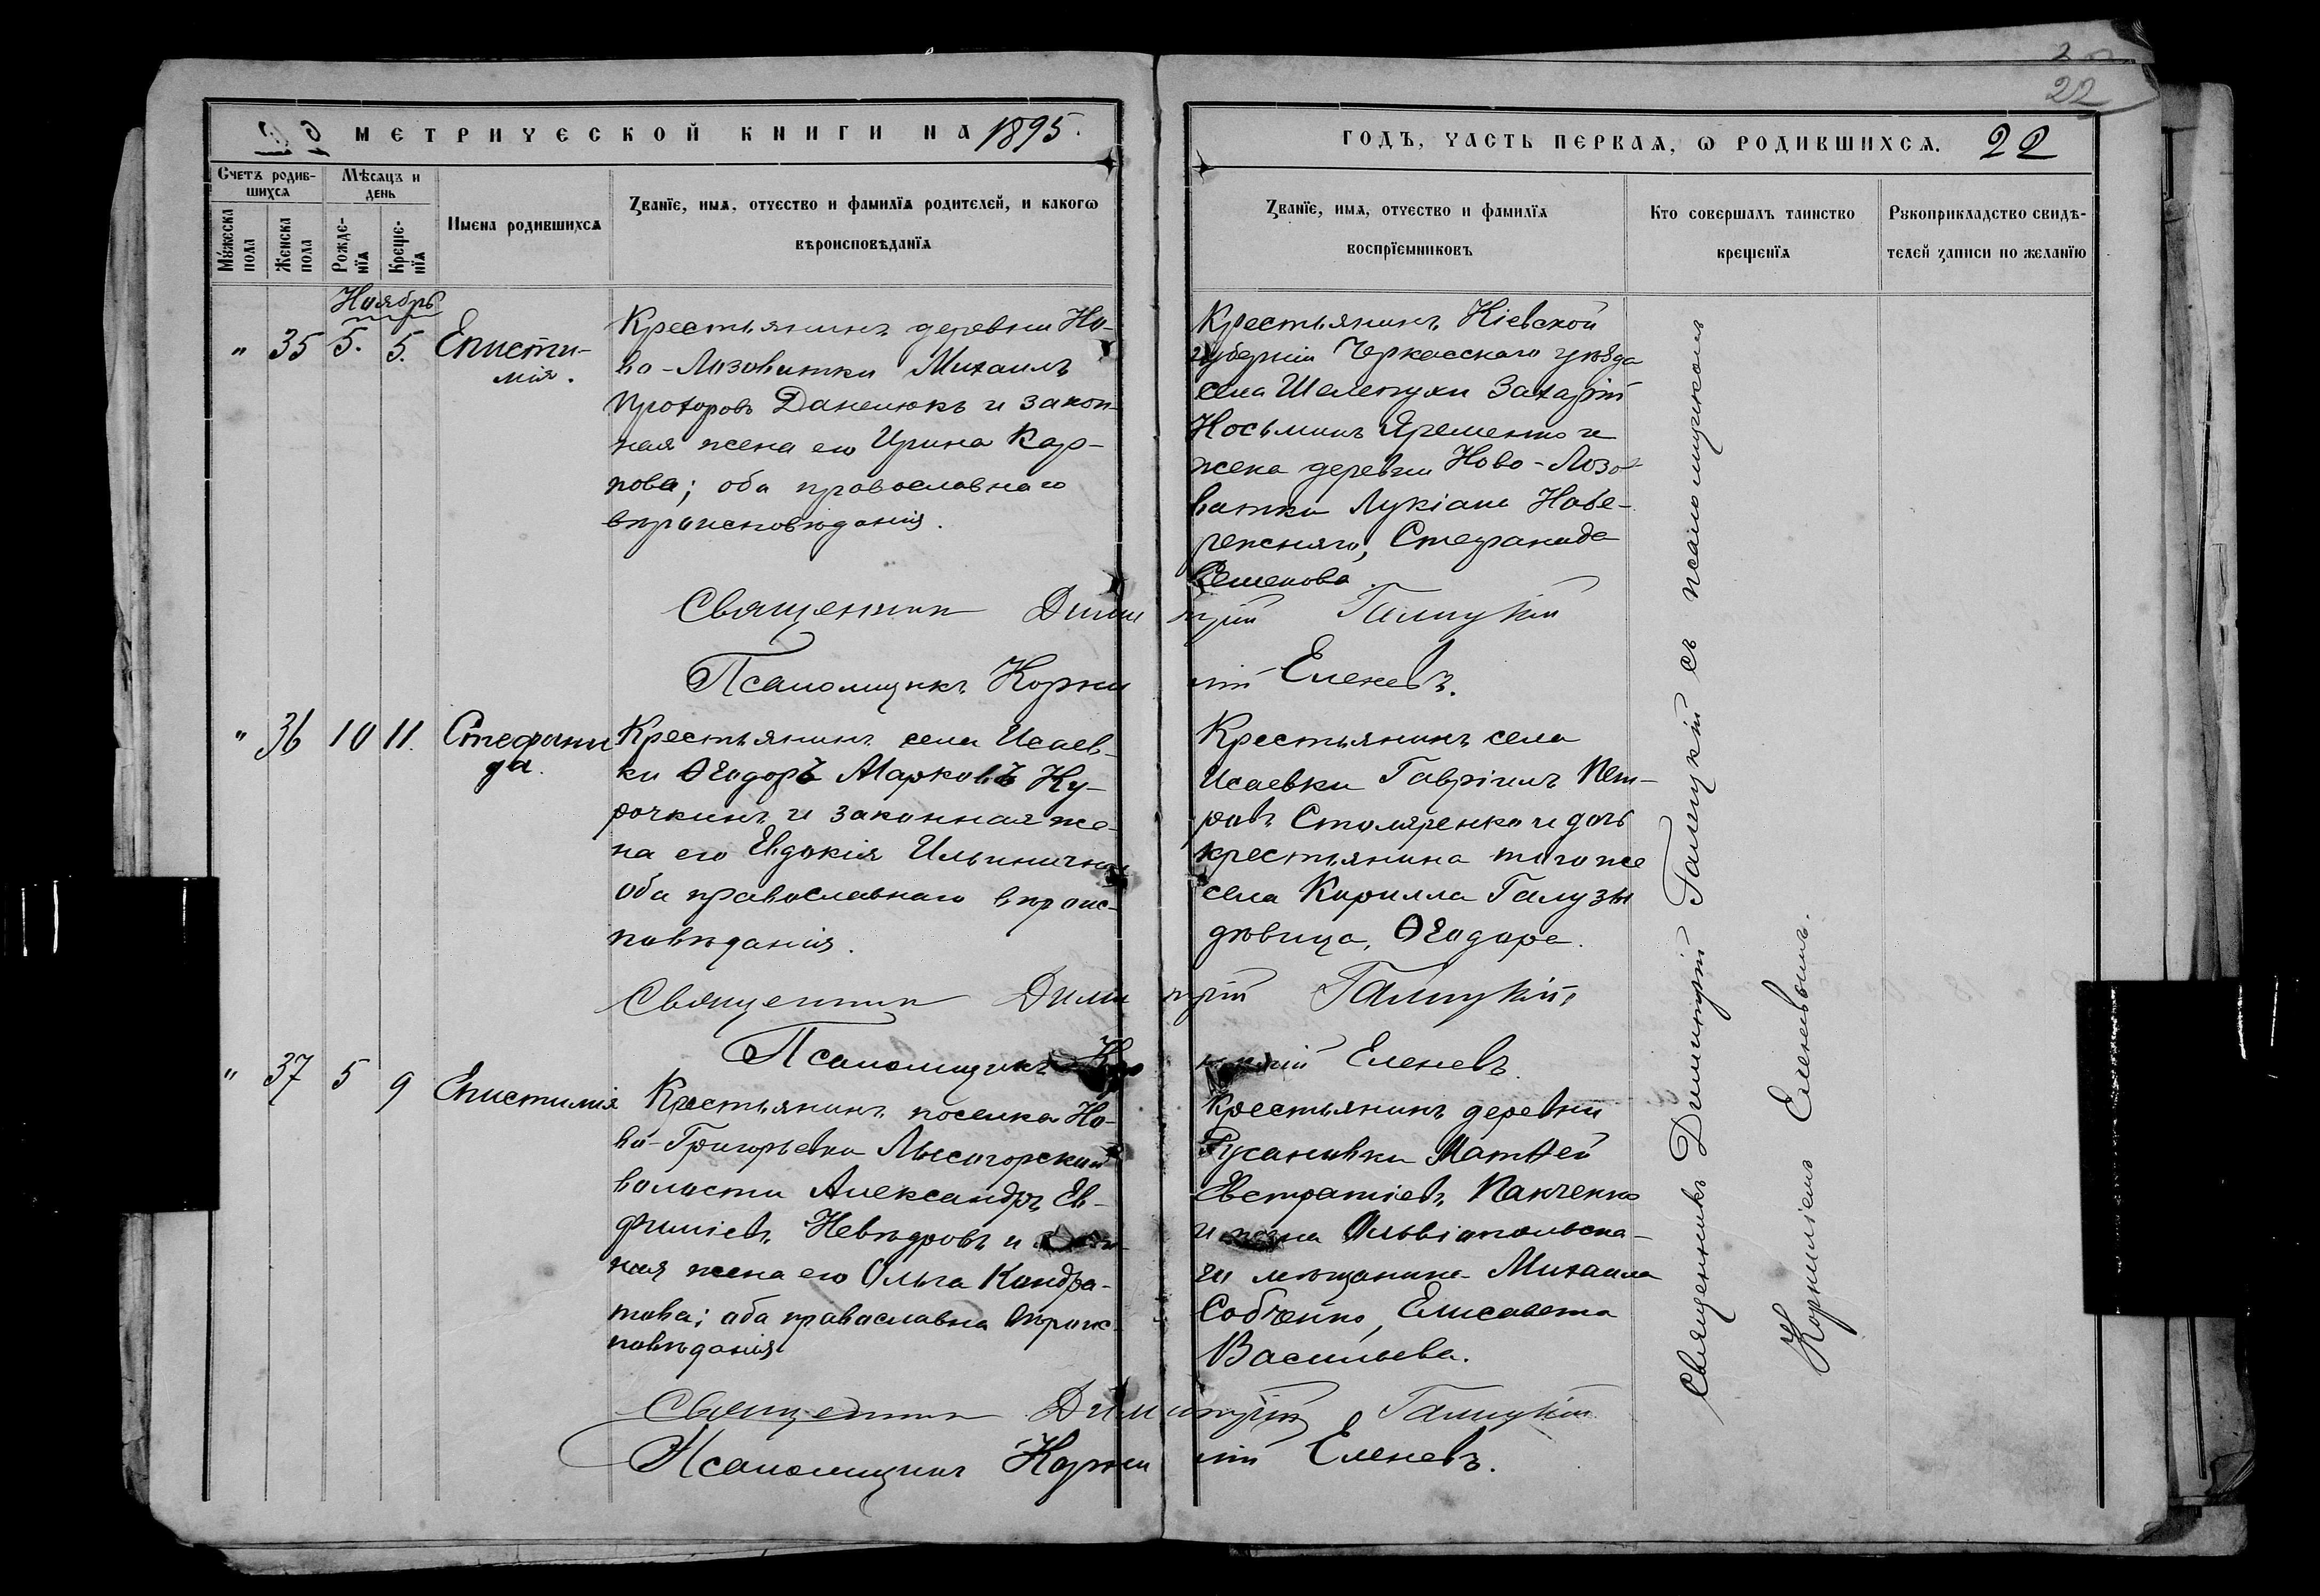 22
МЕТРИЧЕСКОЙ КНИГИ НА 1895.
ГОДЪ, ЧАСТЬ ПЕРВАѦ, Ѡ РОДИВШИХСѦ. 22
Счетъ родив-
шихсѧ
Мѣсѧцъ и
день
Мужеска
пола
Женска
пола
Рожде-
нїѧ
Креще-
нїѧ
Имена родившихсѧ
Званїе, имѧ, отчество и фамилїѧ родителей, и какогѡ
вѣроисповѣданїѧ
Званїе, имѧ, отчество и фамилїѧ
воспрїемниковъ
Кто совершалъ таинство
крещенїѧ
Рꙋкоприкладство свидѣ-
телей записи по желанїю
Ноябрь
" 35 5. 5. Еписти-
мія.
Крестьянинъ деревни Но-
во-Лозоватки Михаилъ
Прохоровъ Данелюкъ и закон-
ная жена его Ирина Кар-
пова; оба православнаго
вѣроисповѣданія.
Крестьянинъ Кіевской
губерніи Черкасскаго уѣзда
села Шелепухи Захарій
Косьминъ Яременко и
жена деревни Ново-Лозо-
ватки Лукіана Набе-
режняго, Стефанида
Семенова.
Священникъ Димитрій Галицкій
Псаломщикъ Корнилій Еленевъ.
" 36 10 11. Стефани
да.
Крестьянинъ села Исаев-
ки Ѳеодоръ Марковъ Ку-
рочкинъ и законная же-
на его Евдокія Ильинична
оба православнаго вѣроис-
повѣданія.
Крестьянинъ села
Исаевки Гавріилъ Пет-
ровъ Столяренко и дочь
крестьянина того же
села Кирилла Галузы
дѣвица, Ѳеодора.
Священникъ Димитрій Галицкій
Псаломщикъ Корнилій Еленевъ.
" 37 5 9 Епистимія
Крестьянинъ поселка Но-
во-Григорьевки Лысогорской
волости Александръ Ев-
фиміевъ Невѣдровъ и
ная жена его Ольга Кондра-
това; оба православна вѣроис-
повѣданія
Крестьянинъ деревни
Русановки Матѳей
Евстратіевъ Панченко
и жена Ольвіопольска-
го мѣщанина Михаила
Собченко, Елисавета
Васильева.
Священникъ Димитрій Галицкій
Псаломщикъ Корнилій Еленевъ.
Священникъ Димитрій Галицкій съ псаломщикомъ
Корниліемъ Еленевымъ.